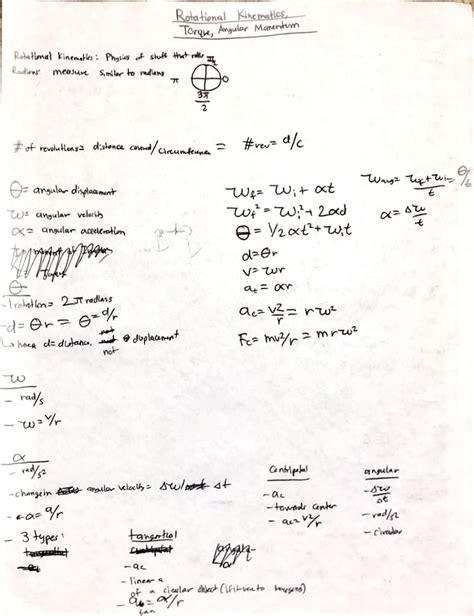 Rotational Kinematics,
Torque, Angular Momentum
Rotational Kinematics: Physics of stuff that rolls
Radians: measure similar to radians
π 0
3π/2
# of revolutions = distance covered/circumference = #rev = d/c
θ = angular displacement
ω = angular velocity
α = angular acceleration
ωf = ωi + αt
ωf² = ωi² + 2αd
θ = 1/2 αt² + ωit
d = θr
v = ωr
at = αr
ac = v²/r = rω²
Fc = mv²/r = mrω²
ωavg = ωf+ωi = θ/t
α = Δω/t
- 1 rotation = 2π radians
- d = θr = θ = d/r
↳ here d = distance, not displacement
ω
- rad/s
- ω = v/r
α
- rad/s²
- change in angular velocity = Δω/Δt
- α = a/r
- 3 types:
tangential
- ac
- linear a
of a circular object (if it were to
Centripetal
- ac
- towards center
- ac = v²/r
angular
- Δω/Δt
- rad/s²
- circular